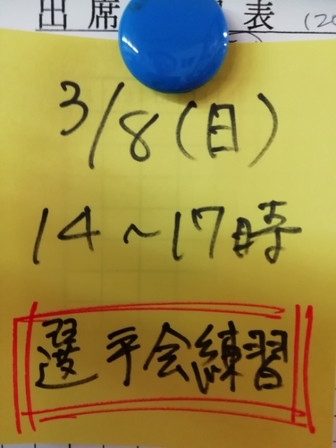 出席 表 (20
3/8(日)
14~17時
選手会練習